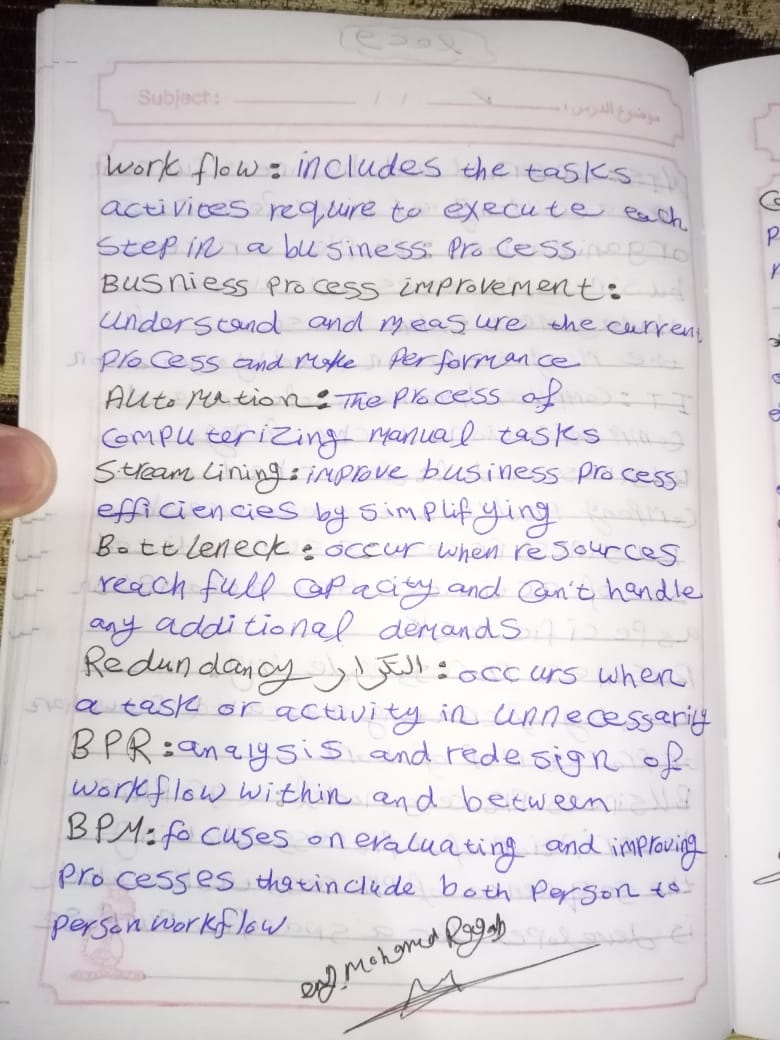 Subject: / / موضوع الدرس:
work flow: includes the tasks
activites require to execute each
step in a business process
Busniess process improvement:
understand and measure the current
process and make performance
Automation: The process of
computerizing manual tasks
Stream lining: improve business process
efficiencies by simplifying
Bottleneck: occur when resources
reach full capacity and can't handle
any additional demands
Redundancy التكرار: occurs when
a task or activity in unnecessarily
BPR: analysis and redesign of
workflow within and between
BPM: focuses on evaluating and improving
processes that include both person to
person workflow
eng. Mohamed Ragab